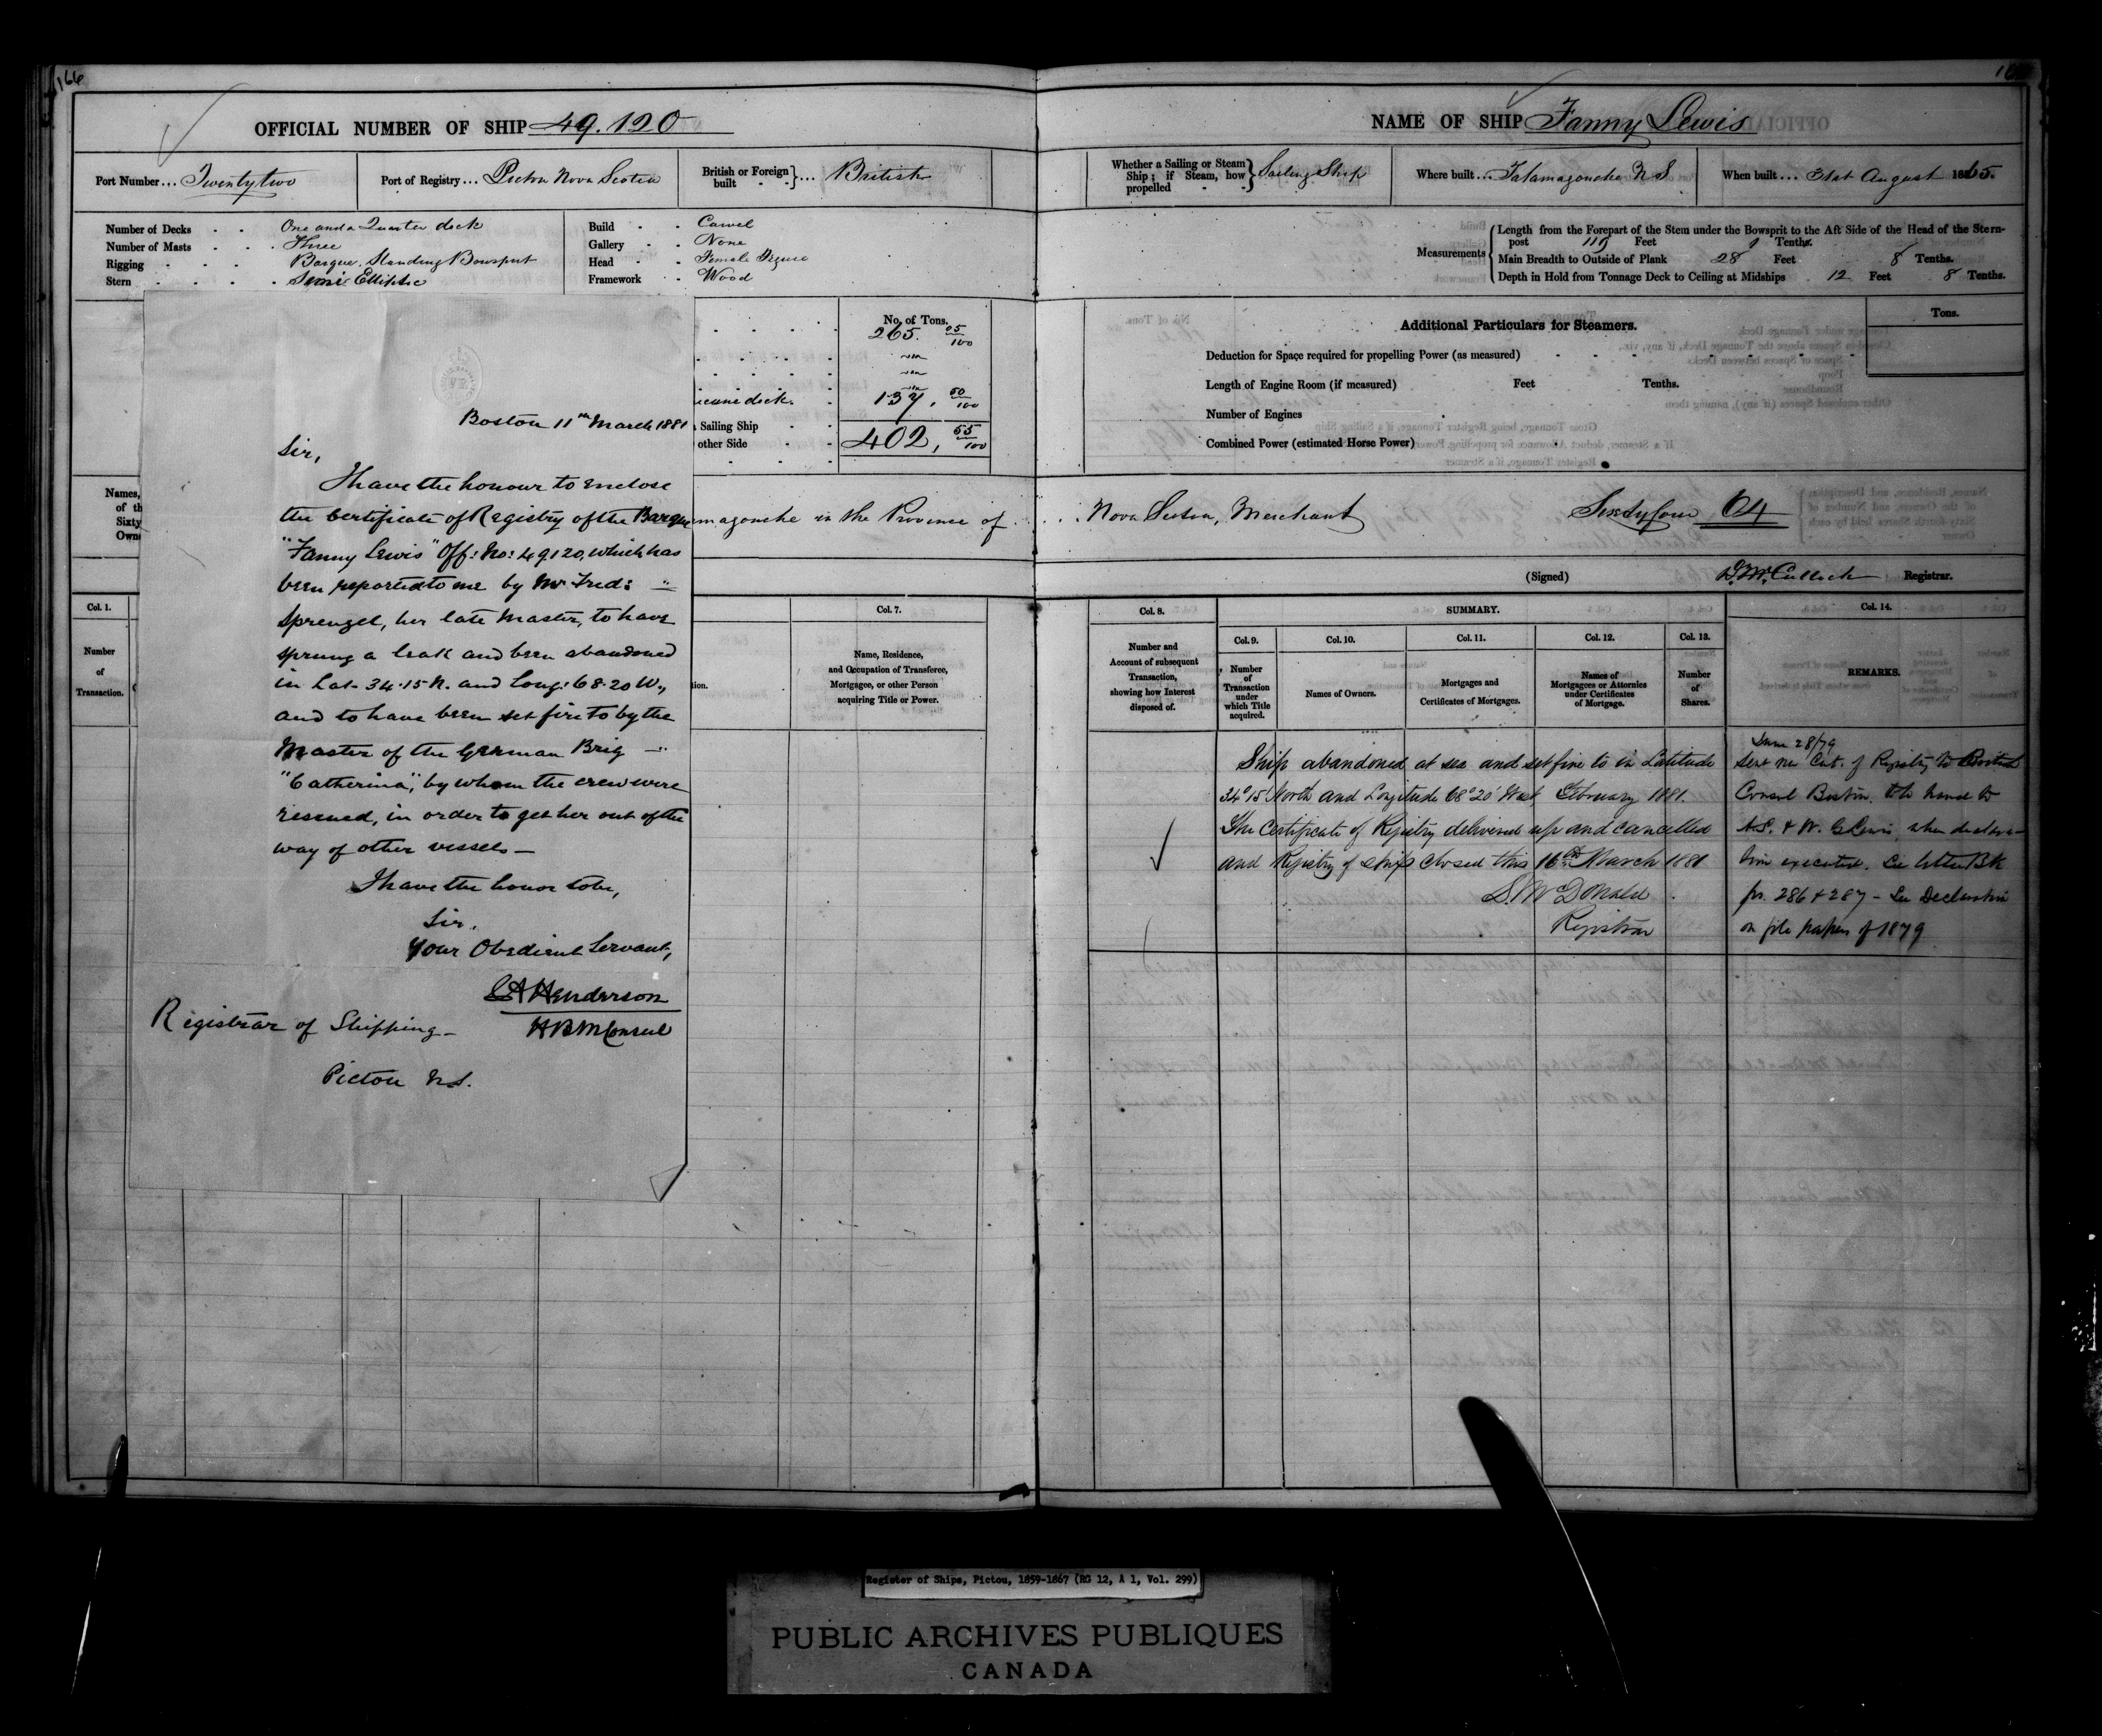 166
OFFICIAL NUMBER OF SHIP 49.120
Port Number... Twentytwo
Port of Registry... Pictou Nova Scotia
British or Foreign built - - }... British
Number of Decks - - One and a Quarter deck
Number of Masts - - Three
Rigging - - - Barque, Standing Bowsprit
Stern - - - - Semi Elliptic
Build - - Carvel
Gallery - - None
Head - - Female Figure
Framework - Wood
No. of Tons.
265. 05/100
137, 50/100
Sailing Ship
other Side
402, 55/100
Boston 11th March 1881
Sir,
I have the honour to enclose
the Certificate of Registry of the Barque
"Fanny Lewis" Off: No: 49120, which has
been reported to me by Mr Fred:
Sprengel, her late Master, to have
sprung a leak and been abandoned
in Lat- 34.15 N. and Long: 68.20 W.,
and to have been set fire to by the
Master of the German Brig
"Catherina", by whom the crew were
rescued, in order to get her out of the
way of other vessels -
I have the honor to be,
Sir,
Your Obedient Servant,
CA Henderson
HBM Consul
Registrar of Shipping -
Pictou N.S.
Names,
of th
Sixty
Own
magouche in the Province of
Col. 1.
Number
of
Transaction.
tion.
Col. 7.
Name, Residence,
and Occupation of Transferee,
Mortgagee, or other Person
acquiring Title or Power.
NAME OF SHIP Fanny Lewis
Whether a Sailing or Steam Ship; if Steam, how propelled - - } Sailing Ship
Where built... Tatamagouche N S
When built... 31st August 1865.
Measurements
Length from the Forepart of the Stem under the Bowsprit to the Aft Side of the Head of the Stern-
post 119 Feet Tenths.
Main Breadth to Outside of Plank 28 Feet 8 Tenths.
Depth in Hold from Tonnage Deck to Ceiling at Midships 12 Feet 8 Tenths.
Additional Particulars for Steamers.
Tons.
Deduction for Space required for propelling Power (as measured)
Length of Engine Room (if measured) Feet Tenths.
Number of Engines
Combined Power (estimated Horse Power)
Nova Scotia, Merchant Sixtyfour 64
(Signed) D. McCulloch Registrar.
Col. 8.
Number and
Account of subsequent
Transaction,
showing how Interest
disposed of.
SUMMARY.
Col. 9.
Number
of
Transaction
under
which Title
acquired.
Col. 10.
Names of Owners.
Col. 11.
Mortgages and
Certificates of Mortgages.
Col. 12.
Names of
Mortgagees or Attornies
under Certificates
of Mortgage.
Col. 13.
Number
of
Shares.
Col. 14.
REMARKS.
Ship abandoned at sea and set fire to in Latitude
34°15' North and Longitude 68°20' West February 1881.
The Certificate of Registry delivered up and cancelled
and Registry of Ships closed this 16th March 1881
S. McDonald
Registrar
June 28/79
Sent new Cert. of Registry to British
Consul Boston, to hand to
A.S. & W. G Lewis, when declara-
tion executed. See letter BK
ps. 286 & 287 - See Declaration
on file papers of 1879
Register of Ships, Pictou, 1859-1867 (RG 12, A 1, Vol. 299)
PUBLIC ARCHIVES PUBLIQUES
CANADA